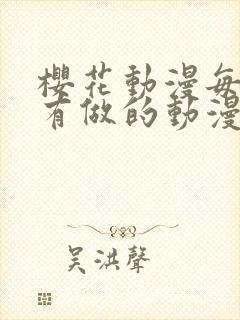 櫻花動漫每
有做的動漫
吳洪聲